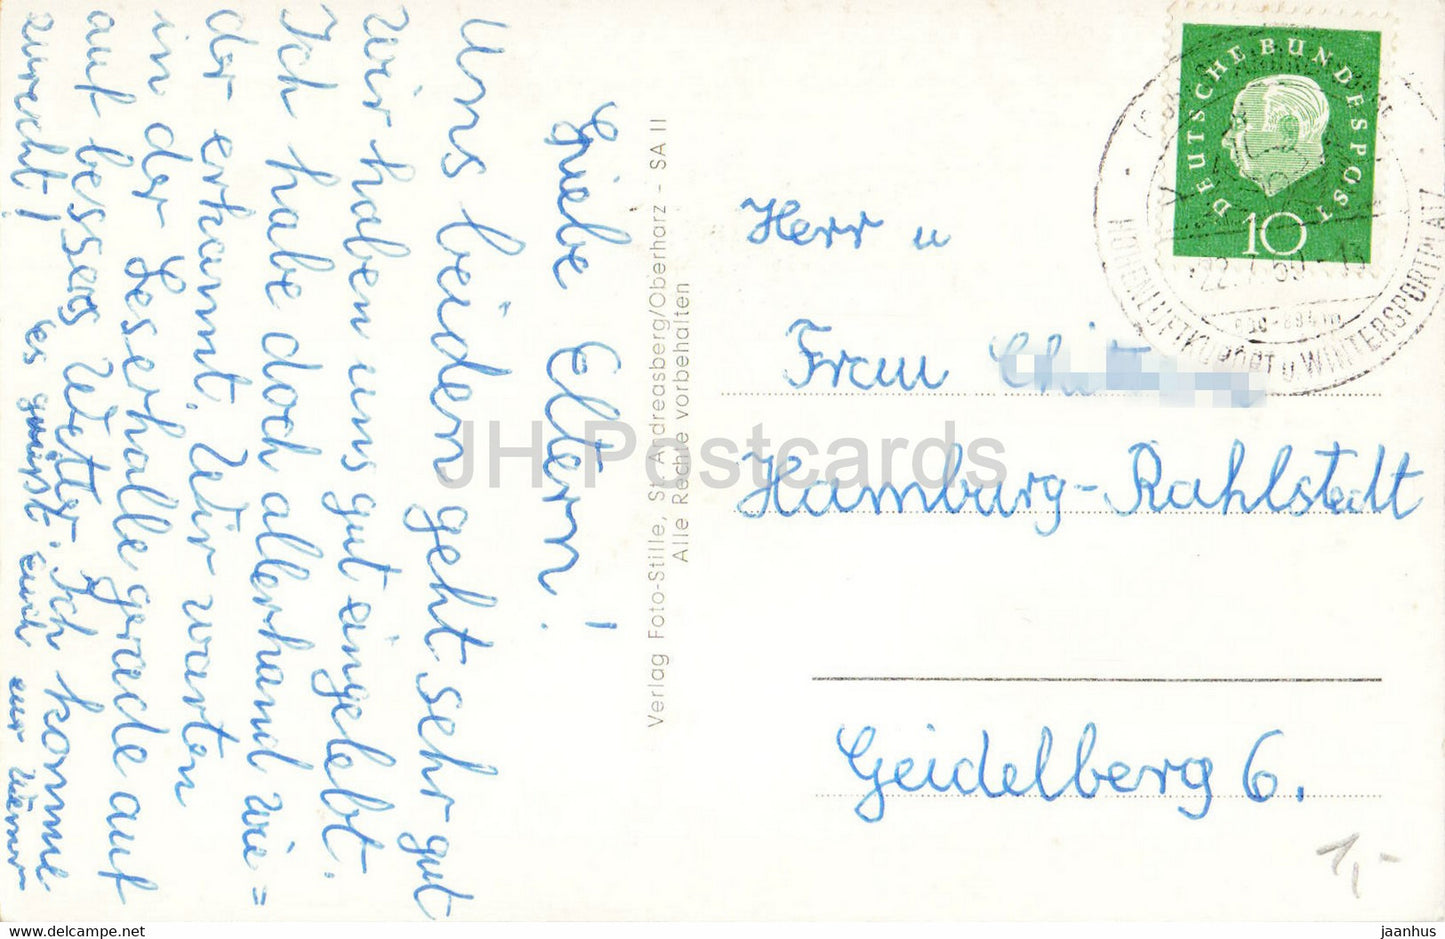 Liebe Eltern!
Uns beiden geht sehr gut
wir haben uns gut eingelebt.
Ich habe doch allerhand wie=
der erkannt. Wir warten
in der Leserhalle gerade auf
auf bessers Wetter. Ich komme
zurecht!
es grüsst euch eur Werner
Verlag Foto-Stille, St. Andreasberg/Oberharz - SA II
Alle Rechte vorbehalten
DEUTSCHE BUNDESPOST
10
HÖHENLUFTKURORT u WINTERSPORTPLATZ
Herr u
Frau
Hamburg-Rahlstedt
Geidelberg 6.
1,-
JH Postcards
www.hippostcard.com
jaanhus